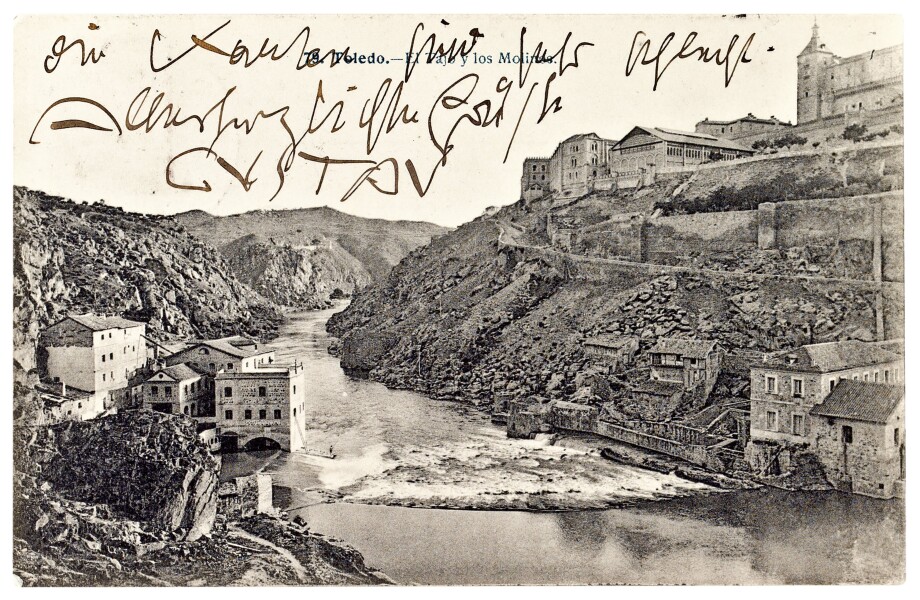 die Karten sind sehr schlecht.
79. Toledo.—El Tajo y los Molinos.
Allerherzlichste Grüße
GUSTAV